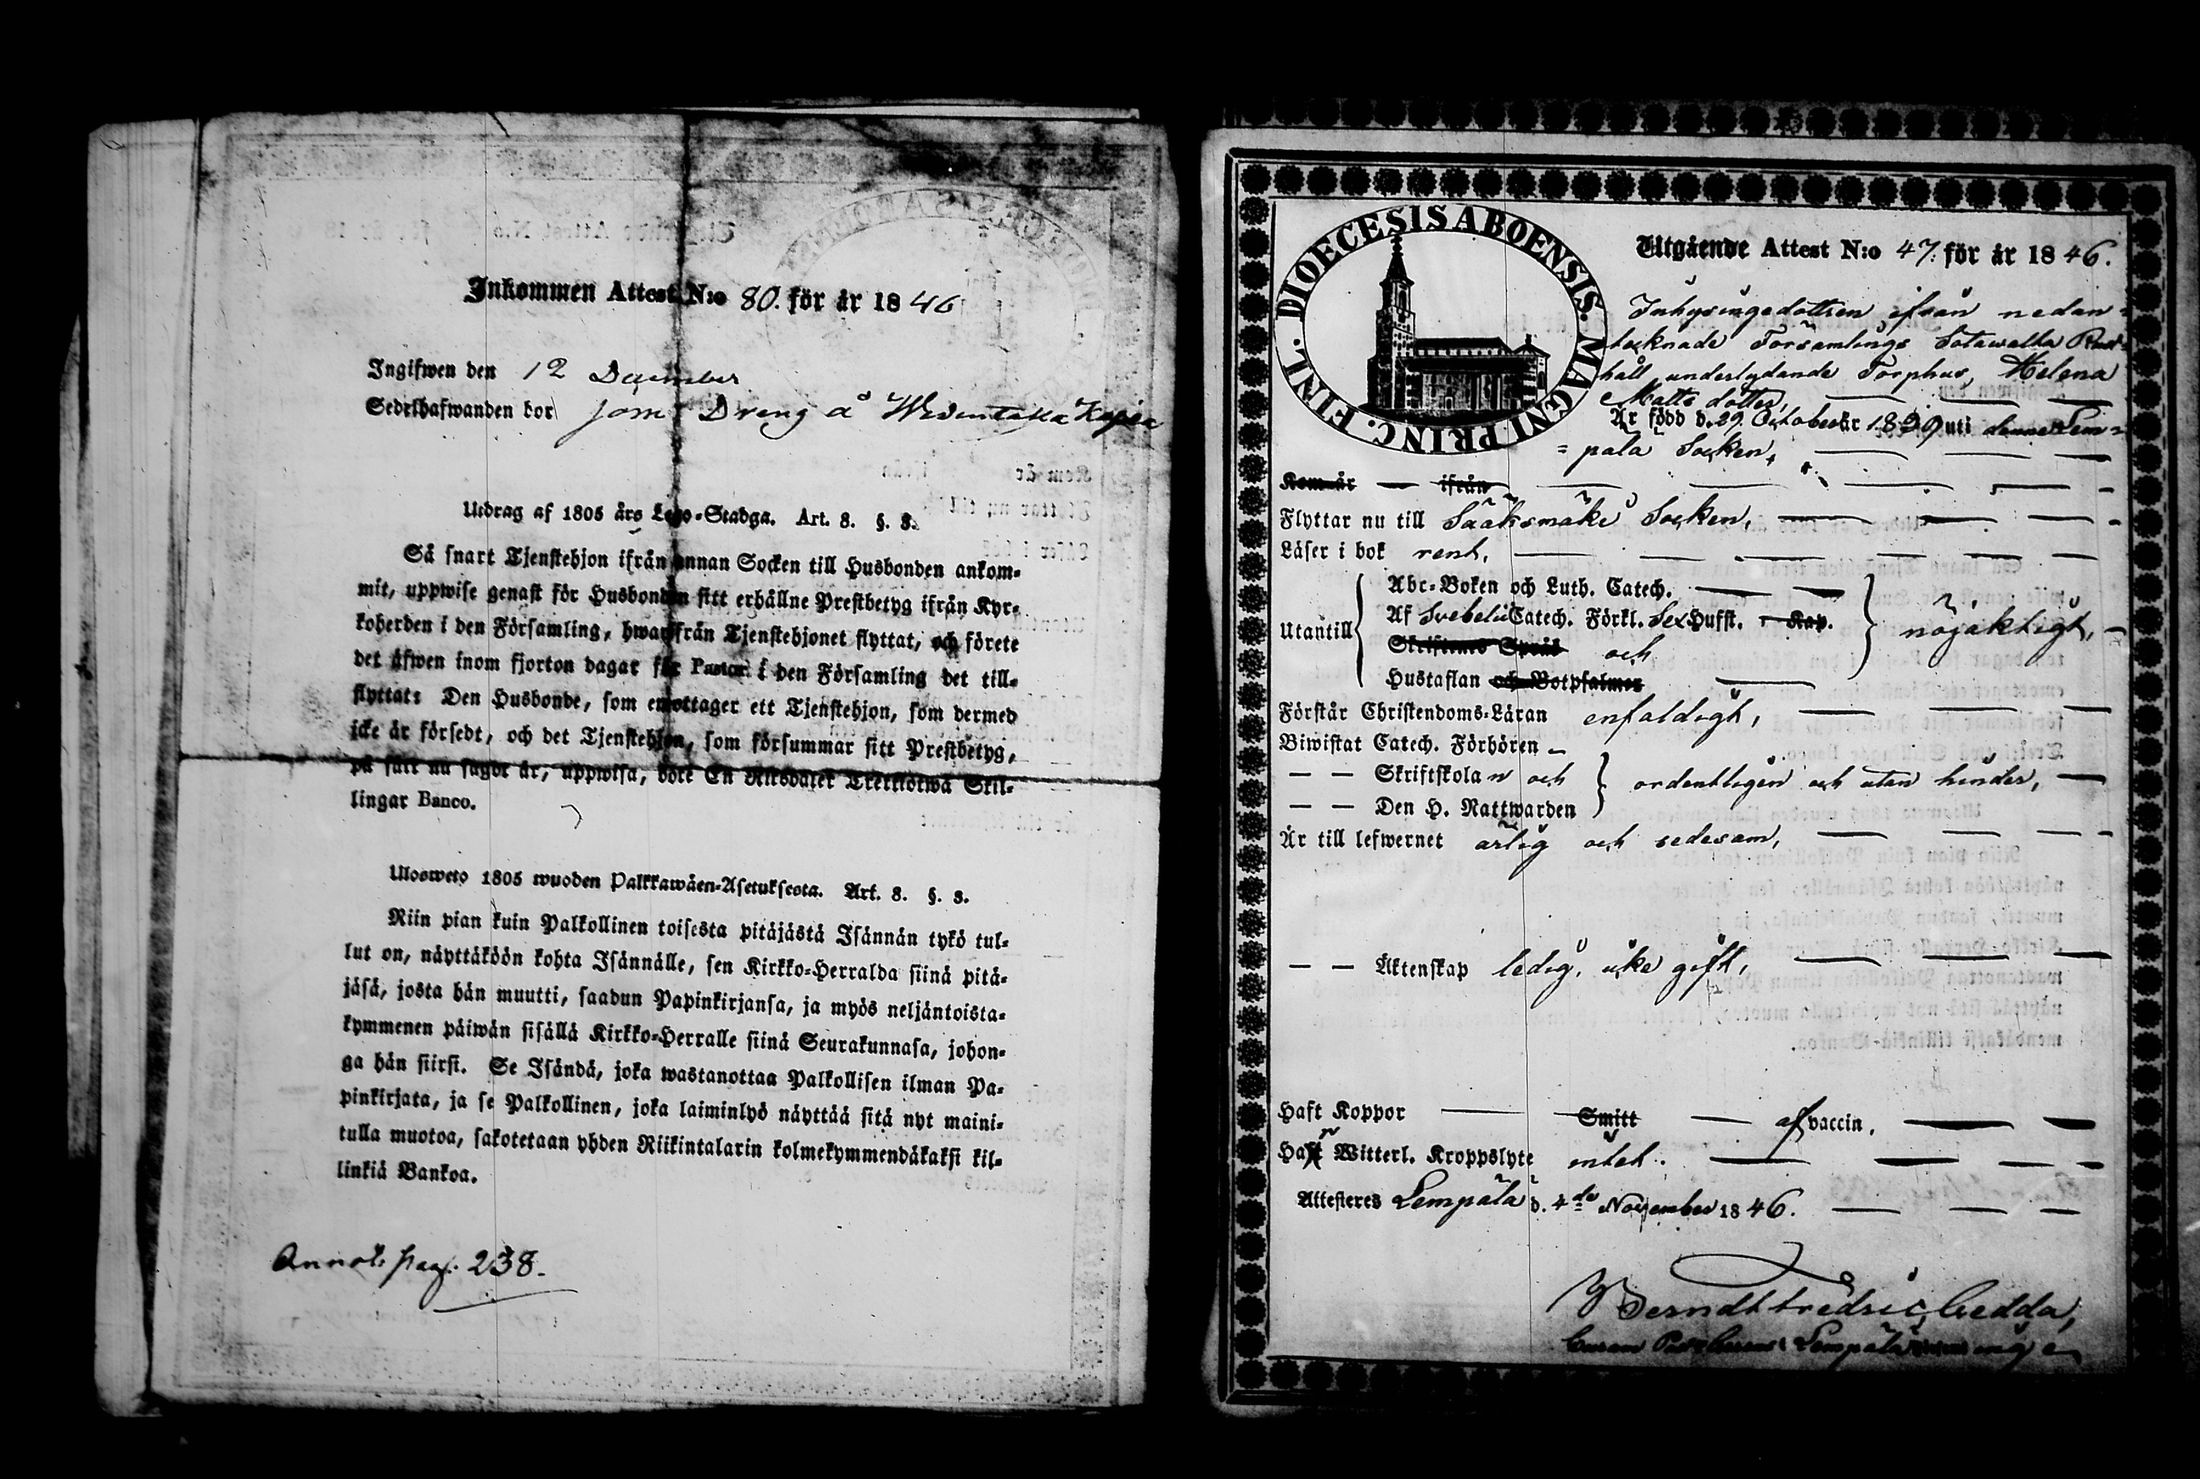 Inkommen Attest N:o 80. för år 1846
Ingifwen den 12 December
Sedelhafwanden bor som Dreng å
Utdrag af 1805 års Lego-Stadga. Art. 8. §. 3.
Så snart Tjenstehjon ifrån annan Socken till Husbonden ankom-
mit, uppwise genast för Husbonden sitt erhållne Prestbetyg ifrån Kyr-
koherden i den Församling, hwarifrån Tjenstehjonet flyttat, och förete
det äfwen inom fjorton dagar för Pastor i den Församling det till-
flyttat: Den Husbonde, som emottager ett Tjenstehjon, som dermed
icke är försedt, och det Tjenstehjon, som försummar sitt Prestbetyg,
på sätt nu sagdt är, uppwisa, böte En Riksdaler Trettiotwå Skil-
lingar Banco.
Ulosweto 1805 wuoden Palkkawäen-Asetuksesta. Art. 8. §. 3.
Niin pian kuin Palkollinen toisesta pitäjästä Isännän tykö tul-
lut on, näyttäköön kohta Isännälle, sen Kirkko-Herralda siinä pitä-
jäsä, josta hän muutti, saadun Papinkirjansa, ja myös neljäntoista-
kymmenen päiwän sisällä Kirkko-Herralle siinä Seurakunnasa, johon-
ga hän siirsi. Se Isändä, joka wastanottaa Palkollisen ilman Pa-
pinkirjata, ja se Palkollinen, joka laiminlyö näyttää sitä nyt maini-
tulla muotoa, sakotetaan yhden Riikintalarin kolmekymmendäkaksi kil-
linkiä Bankoa.
Annot. pag. 238.
DIOECESIS ABOENSIS. MAGNI PRINC. FINL.
Utgående Attest N:o 47. för år 1846.
Inhysingedottren ifrån nedan-
tecknade Församlings Sotawalta Rust-
håll underlydande Torphus, Helena
Matts dotter,
Är född d. 29 October år 1829 uti denna Lem-
=pälä Socken,
Kom år ifrån
Flyttar nu till Sääksmäki Socken,
Läser i bok rent,
Utantill
Abc-Boken och Luth. Catech.
Af Svebelii Catech. Förkl. Sex Hufst. Kap.
Skriftenes Språk och
Hustaflan och Botpsalmer
nöjaktigt,
Förstår Christendoms-Läran enfaldigt,
Biwistat Catech. Förhören
— — Skriftskolan och
— — Den H. Nattwarden
ordentligen och utan hinder,
Är till lefwernet ärlig och sedesam,
— — Äktenskap ledig, icke gift,
Haft Koppor Smitt af vaccin,
Har Witterl. Kroppslyte intet.
Attesteres Lempälä d. 4de November 1846.
Berndt Fredric Gedda,
Lempälä